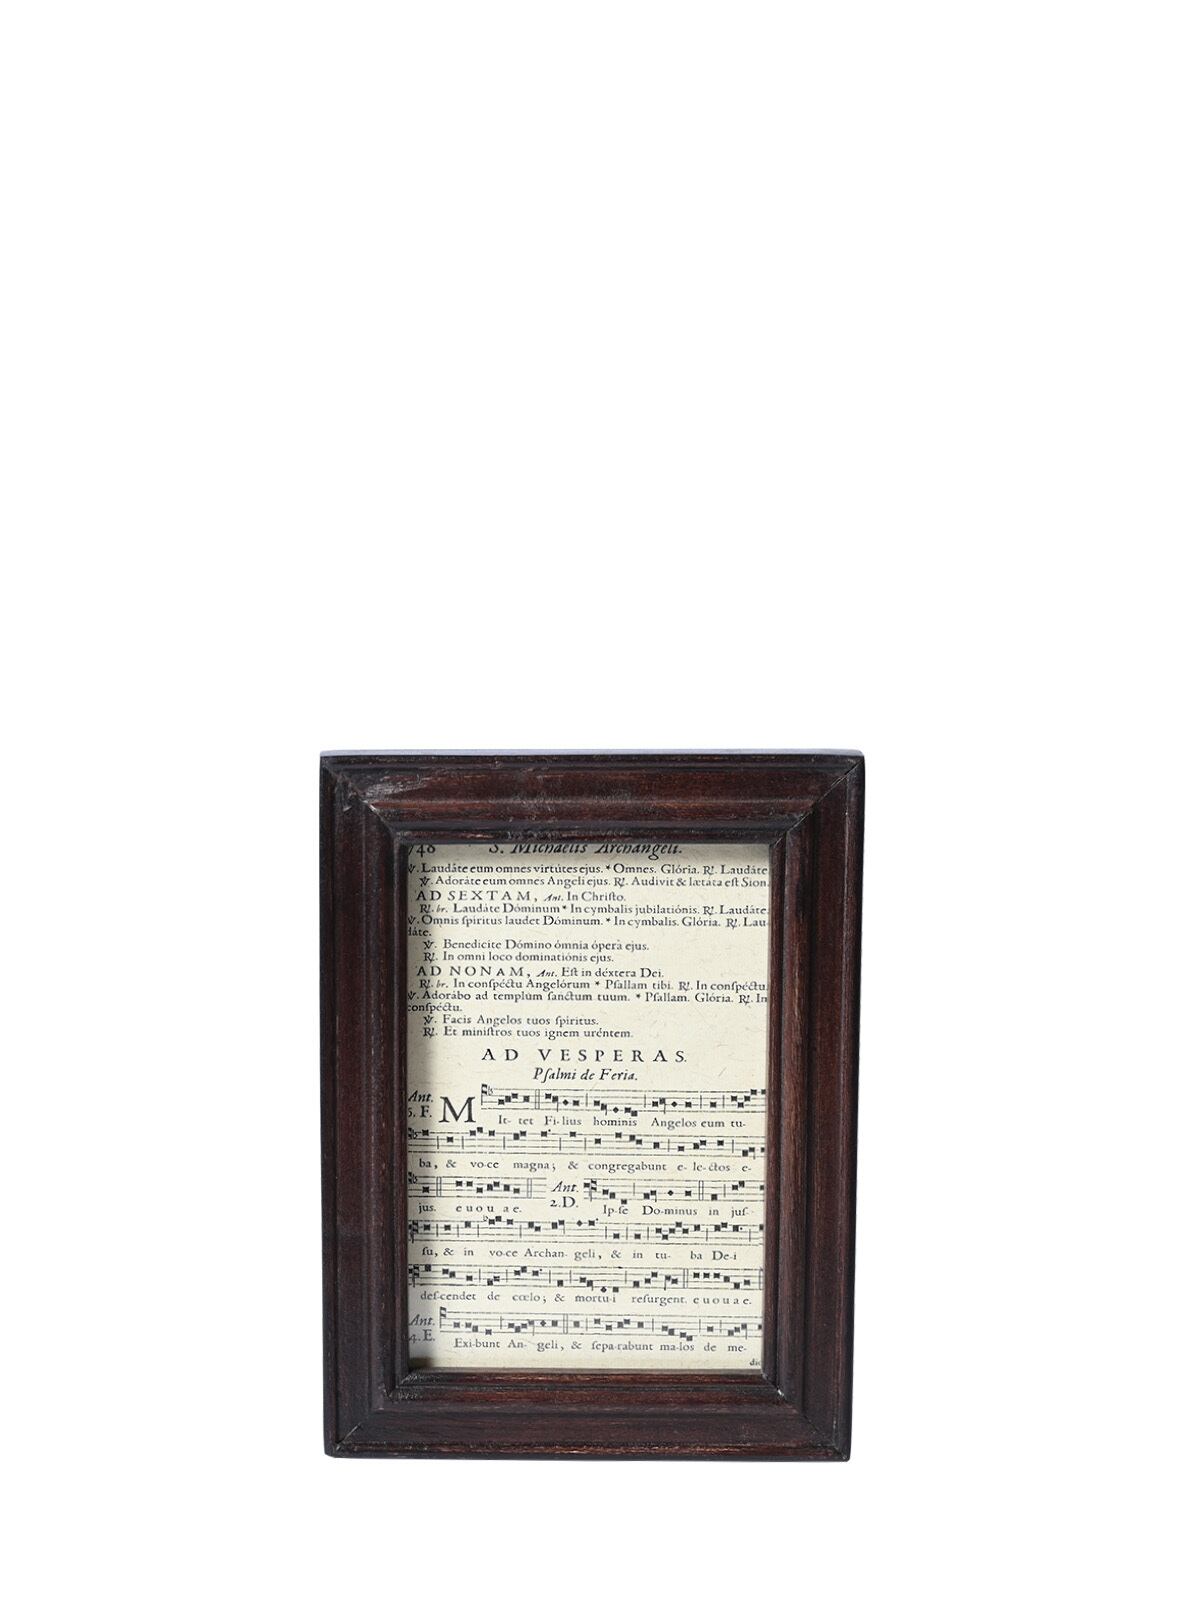 748 S. Michaelis Archangeli.
℣. Laudáte eum omnes virtútes ejus. * Omnes. Glória. ℟. Laudáte
℣. Adoráte eum omnes Angeli ejus. ℟. Audivit & lætáta eſt Sion.
AD SEXTAM, Ant. In Chriſto.
℟. br. Laudáte Dóminum * In cymbalis jubilatiónis. ℟. Laudáte.
℣. Omnis ſpíritus laudet Dóminum. * In cymbalis. Glória. ℟. Lau-
dáte.
℣. Benedícite Dómino ómnia ópera ejus.
℟. In omni loco dominatiónis ejus.
AD NONAM, Ant. Eſt in déxtera Dei.
℟. br. In conſpéctu Angelórum * Pſallam tibi. ℟. In conſpéctu.
℣. Adorábo ad templum ſanctum tuum. * Pſallam. Glória. ℟. In
conſpéctu.
℣. Facis Angelos tuos ſpíritus.
℟. Et miniſtros tuos ignem uréntem.
AD VESPERAS.
Pſalmi de Feria.
Ant.
5. F. MIt- tet Fi-lius hominis Angelos eum tu-
ba, & vo-ce magna; & congregabunt e-le-ctos e-
jus. e u o u a e. Ant. 2.D. Ip-ſe Do-minus in juſ-
ſu, & in vo-ce Archan-geli, & in tu- ba De-i
deſ-cendet de cœlo; & mortu-i reſurgent. e u o u a e.
Ant.
4. E. Exi-bunt An- geli, & ſepa-rabunt ma-los de me-
dio